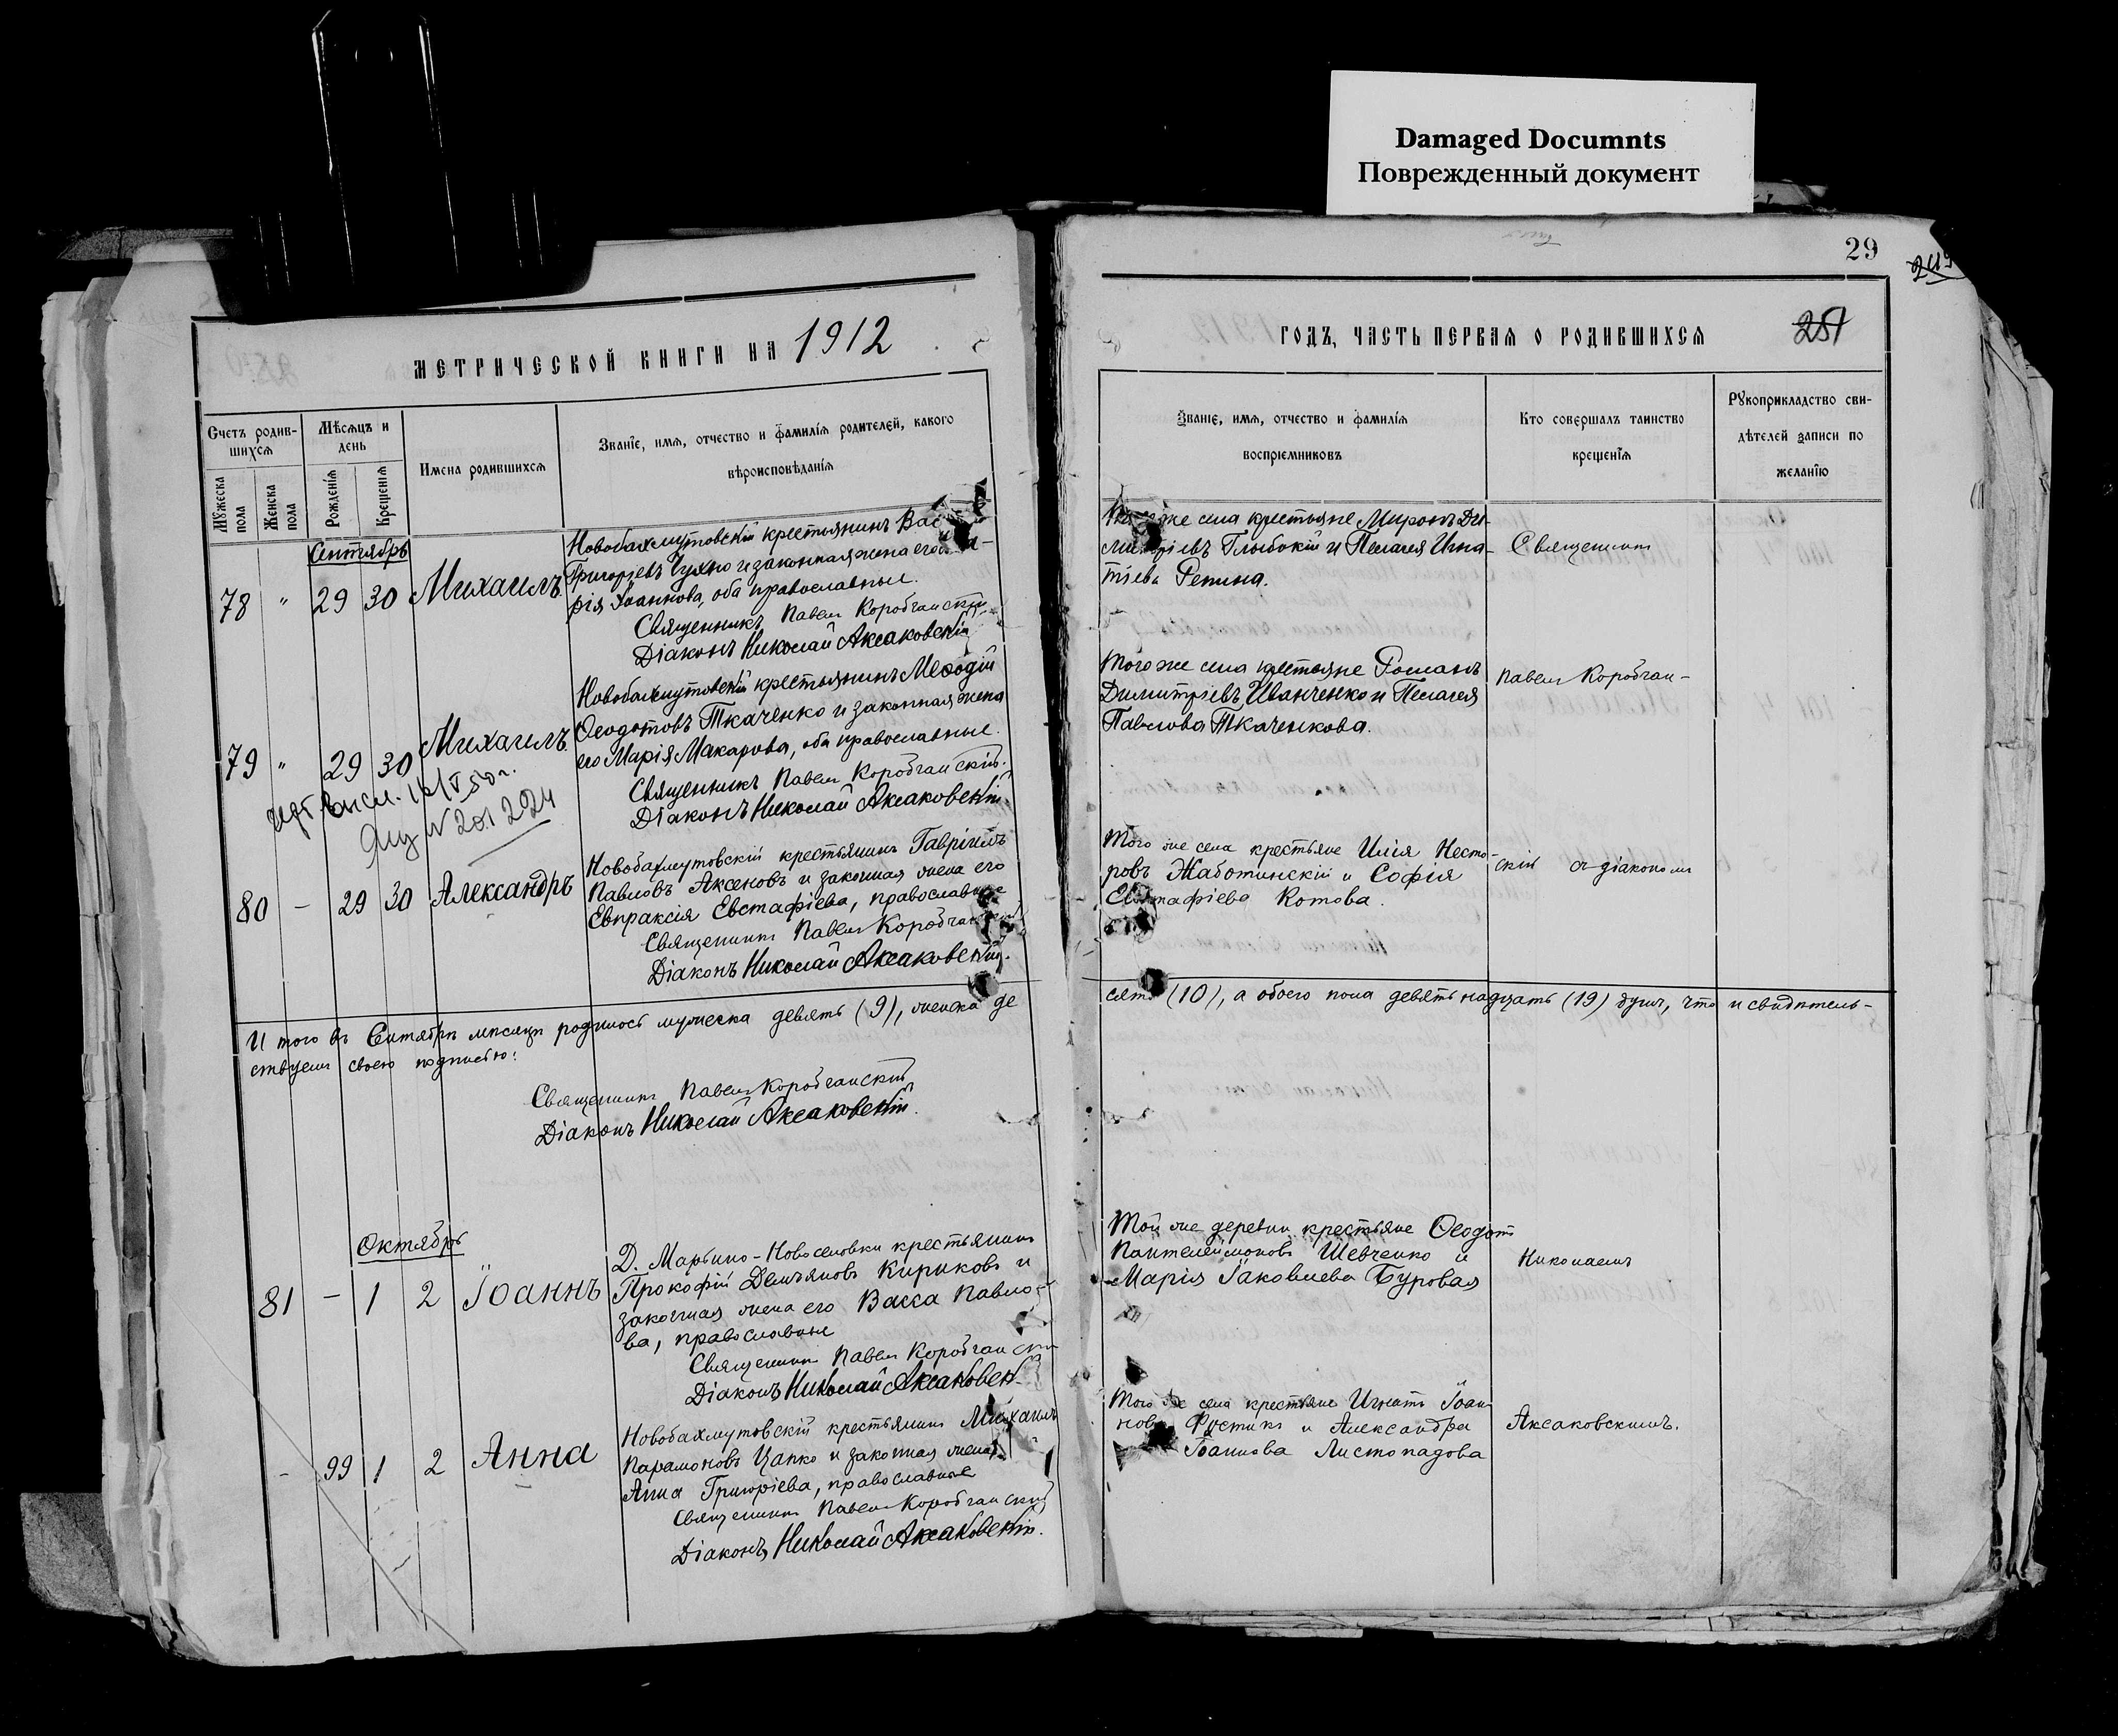 Damaged Documnts
Поврежденный документ
29
МЕТРИЧЕСКОЙ КНИГИ НА 1912
Счетъ родив-
шихся
Мужеска пола
Женска пола
Мѣсяцъ и
день
Рожденія
Крещенія
Имена родившихся
Званіе, имя, отчество и фамилія родителей, какого
вѣроисповѣданія
Сентябрь
78 " 29 30 Михаилъ
Новобахмутовскій крестьянинъ Вас
Григорьевъ Чухно и законная жена его
рія Іоаннова, оба православные.
Священникъ Павелъ Коробчанскій
Діаконъ Николай Аксаковскій
79 " 29 30 Михаилъ
Новобахмутовскій крестьянинъ Меѳодій
Ѳеодотовъ Ткаченко и законная жена
его Марія Макарова, оба православные.
Священникъ Павелъ Коробчанскій.
Діаконъ Николай Аксаковскій.
80 – 29 30 Александръ
Новобахмутовскій крестьянинъ Гавріилъ
Павловъ Аксеновъ и законная жена его
Евпраксія Евстафіева, православные
Священникъ Павелъ Коробчанскій
Діаконъ Николай Аксаковскій.
Итого въ Сентябрѣ мѣсяцѣ родилось мужеска девять (9), женска де
ствуемъ своею подписью:
Священникъ Павелъ Коробчанскій
Діаконъ Николай Аксаковскій.
Октябрь
81 – 1 2 Іоаннъ
Д. Марьино-Новоселовки крестьянинъ
Прокофій Демьяновъ Кириковъ и
законная жена его Васса Павло-
ва, православные
Священникъ Павелъ Коробчанскій
Діаконъ Николай Аксаковск
- 99 1 2 Анна
Новобахмутовскій крестьянинъ Михаилъ
Парамоновъ Цапко и законная жена
Анна Григоріева, православные
Священникъ Павелъ Коробчанскій
Діаконъ Николай Аксаковскій.
ГОДЪ, ЧАСТЬ ПЕРВАЯ О РОДИВШИХСЯ 251
Званіе, имя, отчество и фамилія
воспріемниковъ
Кто совершалъ таинство
крещенія
Рукоприкладство сви-
дѣтелей записи по
желанію
же села крестьяне Миронъ Ди-
митріевъ Глыбокій и Пелагея Игна-
тіева Репина.
Священникъ
Того же села крестьяне Романъ
Димитріевъ Иванченко и Пелагея
Павлова Ткаченкова.
Павелъ Коробчан-
Того же села крестьяне Илія Несто-
ровъ Жаботинскій и Софія
Евстафіева Котова.
скій съ діакономъ
сять (10), а обоего пола девятьнадцать (19) душъ, что и свидѣтель-
Той же деревни крестьяне Ѳеодотъ
Пантелеймоновъ Шевченко и
Марія Іаковлева Буровая
Николаемъ
Того же села крестьяне Игнатъ Іоан
новъ и Александра
Іоаннова Листопадова
Аксаковскимъ.